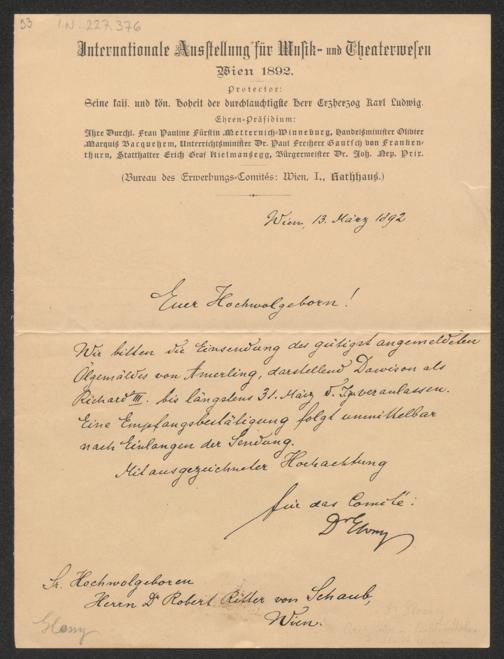 53 I.N. 227.376
Internationale Ausstellung für Musik- und Theaterwesen
Wien 1892.
Protector:
Seine kais. und kön. Hoheit der durchlauchtigste Herr Erzherzog Karl Ludwig.
Ehren-Präsidium:
Ihre Durchl. Frau Pauline Fürstin Metternich-Winneburg, Handelsminister Olivier
Marquis Bacquehem, Unterrichtsminister Dr. Paul Freiherr Gautsch von Franken-
thurn, Statthalter Erich Graf Kielmansegg, Bürgermeister Dr. Joh. Nep. Prix.
(Bureau des Erwerbungs-Comités: Wien, I., Rathhaus.)
Wien, 13. März 1892
Euer Hochwolgeborn!
Wir bitten die Einsendung des gütigst angemeldeten
Ölgemäldes von Amerling, darstellend Dawison als
Richard III. bis längstens 31. März d. J. zu veranlassen.
Eine Empfangsbestätigung folgt unmittelbar
nach Einlangen der Sendung.
Mit ausgezeichneter Hochachtung
für das Comité:
Dr Glossy
Sr. Hochwolgeboren
Herrn Dr Robert Ritter von Schaub,
Wien.
Glossy